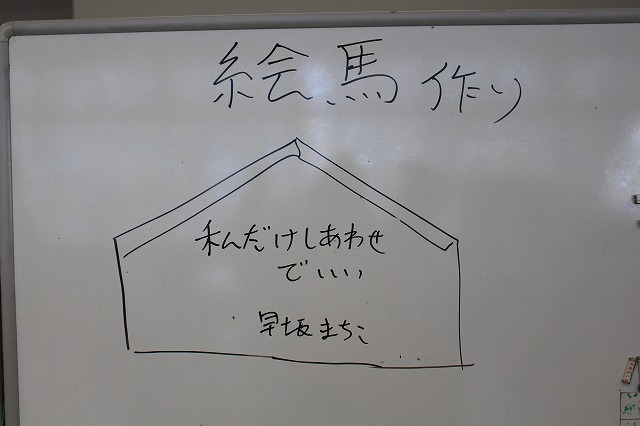 絵馬作り
私んだけしあわせ
でいい
早坂まちこ